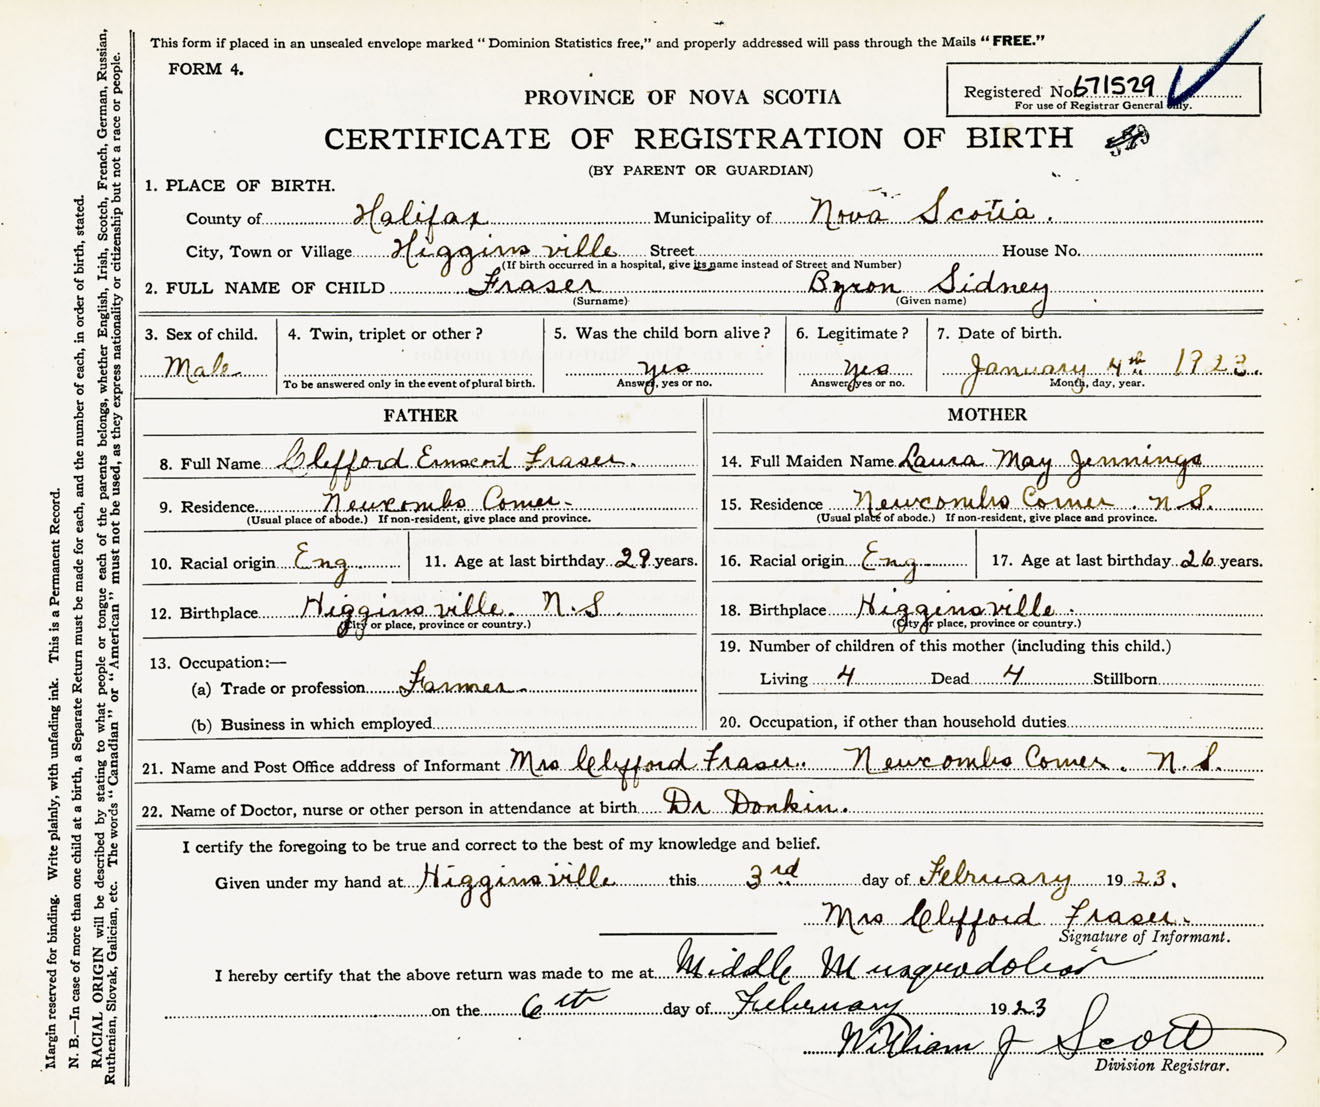 This form if placed in an unsealed envelope marked "Dominion Statistics free," and properly addressed will pass through the Mails "FREE."
FORM 4.
Registered No. 671529
For use of Registrar General only.
PROVINCE OF NOVA SCOTIA
CERTIFICATE OF REGISTRATION OF BIRTH
(BY PARENT OR GUARDIAN)
1. PLACE OF BIRTH.
County of Halifax Municipality of Nova Scotia.
City, Town or Village Higginsville Street House No.
(If birth occurred in a hospital, give its name instead of Street and Number)
2. FULL NAME OF CHILD Fraser Byron Sidney
(Surname) (Given name)
3. Sex of child. 4. Twin, triplet or other? 5. Was the child born alive? 6. Legitimate? 7. Date of birth.
Male yes yes January 4th 1923.
To be answered only in the event of plural birth. Answer, yes or no. Answer yes or no. Month, day, year.
FATHER MOTHER
8. Full Name Clifford Fraser. 14. Full Maiden Name Laura May Jennings
9. Residence Newcombs Corner 15. Residence Newcombs Corner. N.S.
(Usual place of abode.) If non-resident, give place and province. (Usual place of abode.) If non-resident, give place and province.
10. Racial origin Eng 11. Age at last birthday 29 years. 16. Racial origin Eng 17. Age at last birthday 26 years.
12. Birthplace Higginsville. N.S. 18. Birthplace Higginsville.
(City or place, province or country.) (City or place, province or country.)
13. Occupation:— 19. Number of children of this mother (including this child.)
(a) Trade or profession Farmer Living 4 Dead 4 Stillborn
(b) Business in which employed 20. Occupation, if other than household duties
21. Name and Post Office address of Informant Mrs Clifford Fraser. Newcombs Corner. N.S.
22. Name of Doctor, nurse or other person in attendance at birth Dr Donkin.
I certify the foregoing to be true and correct to the best of my knowledge and belief.
Given under my hand at Higginsville this 3rd day of February 1923.
Mrs Clifford Fraser.
Signature of Informant.
I hereby certify that the above return was made to me at Middle
on the 6th day of February 1923
William J Scott
Division Registrar.
Margin reserved for binding. Write plainly, with unfading ink. This is a Permanent Record.
N. B.—In case of more than one child at a birth, a Separate Return must be made for each, and the number of each, in order of birth, stated.
RACIAL ORIGIN will be described by stating to what people or tongue each of the parents belongs, whether English, Irish, Scotch, French, German, Russian,
Ruthenian, Slovak, Galician, etc. The words "Canadian" or "American" must not be used, as they express nationality or citizenship but not a race or people.